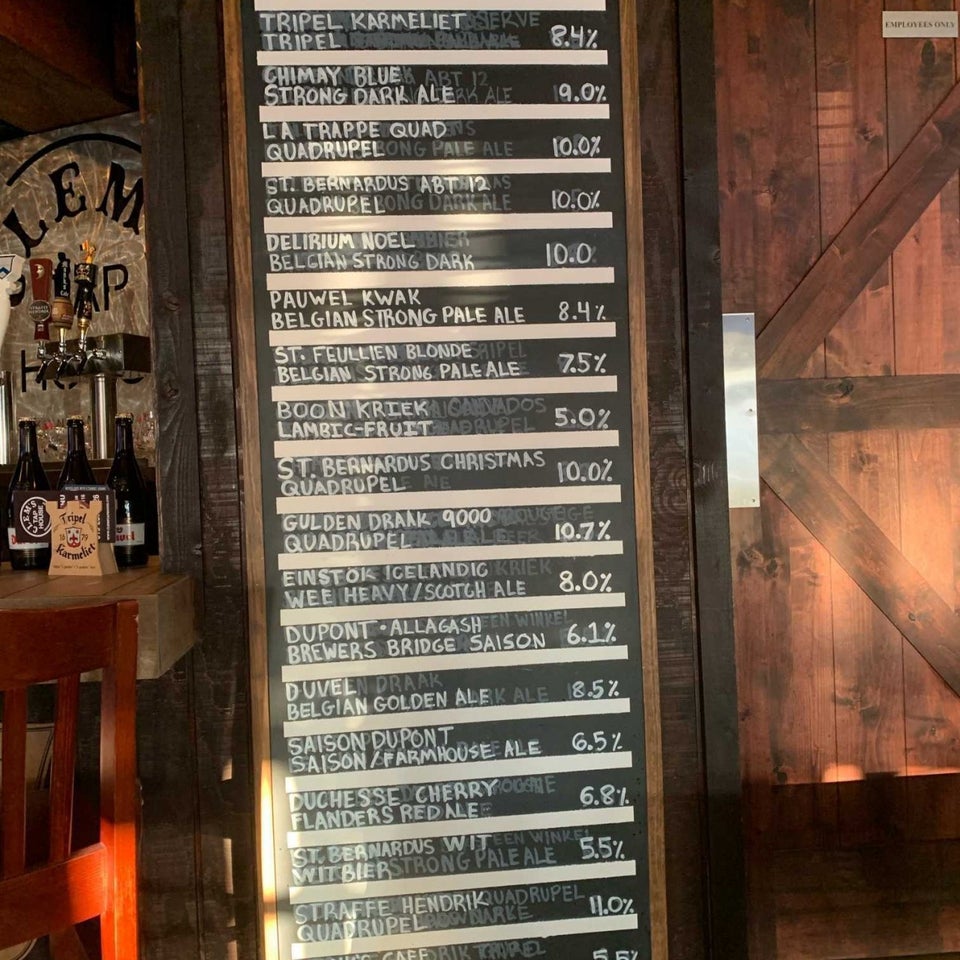 EMPLOYEES ONLY
TRIPEL KARMELIET
TRIPEL 8.4%
CHIMAY BLUE
STRONG DARK ALE 9.0%
LA TRAPPE QUAD
QUADRUPEL 10.0%
ST. BERNARDUS ABT 12
QUADRUPEL 10.0%
DELIRIUM NOEL
BELGIAN STRONG DARK 10.0
PAUWEL KWAK
BELGIAN STRONG PALE ALE 8.4%
ST. FEULLIEN BLONDE
BELGIAN STRONG PALE ALE 7.5%
BOON KRIEK
LAMBIC-FRUIT 5.0%
ST. BERNARDUS CHRISTMAS
QUADRUPEL 10.0%
GULDEN DRAAK 9000
QUADRUPEL 10.7%
EINSTÖK ICELANDIC
WEE HEAVY/SCOTCH ALE 8.0%
DUPONT·ALLAGASH
BREWERS BRIDGE SAISON 6.1%
DUVEL
BELGIAN GOLDEN ALE 8.5%
SAISON DUPONT
SAISON/FARMHOUSE ALE 6.5%
DUCHESSE CHERRY
FLANDERS RED ALE 6.8%
ST. BERNARDUS WIT
WITBIER 5.5%
STRAFFE HENDRIK
QUADRUPEL 11.0%
5.5%
LEM
TAP
Tripel
Karmeliet